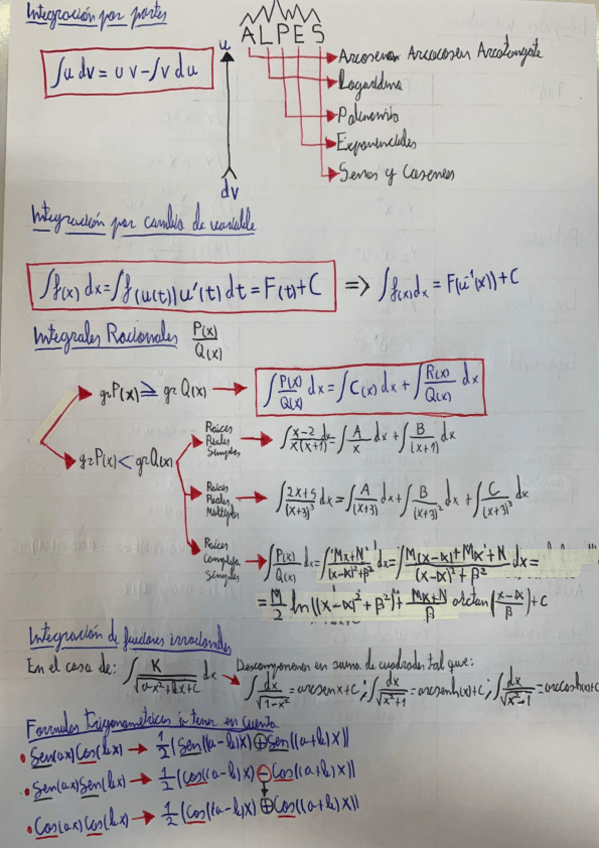 Integración por partes
ALPES
u
∫u dv = u v - ∫v du
Arcosenos Arcocosen Arcotangente
Logaritmo
Polinomio
Exponenciales
Senos y Cosenos
dv
Integración por cambio de variable
∫f(x) dx = ∫f(u(t)) u'(t) dt = F(t) + C ⟹ ∫f(x)dx = F(u⁻¹(x)) + C
Integrales Racionales P(x)/Q(x)
gr P(x) ≥ gr Q(x) → ∫P(x)/Q(x) dx = ∫C(x) dx + ∫R(x)/Q(x) dx
gr P(x) < gr Q(x)
Raíces Reales Simples → ∫(x-2)/(x(x+1)) dx = ∫A/x dx + ∫B/(x+1) dx
Raíces Reales Múltiples → ∫(2x+5)/(x+3)³ dx = ∫A/(x+3) dx + ∫B/(x+3)² dx + ∫C/(x+3)³ dx
Raíces Complejas Simples → ∫P(x)/Q(x) dx = ∫(Mx+N)/((x-α)²+β²) dx = ∫(M(x-α)+Mα+N)/((x-α)²+β²) dx =
= M/2 ln((x-α)²+β²) + (Mα+N)/β arctan((x-α)/β) + C
Integración de funciones irracionales
En el caso de: ∫K/√(a-x²+bx+c) dx → Descomponemos en suma de cuadrados tal que:
∫dx/√(1-x²) = arcsen x + C ; ∫dx/√(x²+1) = arcsenh(x) + C ; ∫dx/√(x²-1) = arccosh(x) + C
Formulas Trigonométricas a tener en cuenta
• Sen(ax)Cos(bx) → 1/2 (Sen((a-b)x) ⊕ Sen((a+b)x))
• Sen(ax)Sen(bx) → 1/2 (Cos((a-b)x) ⊖ Cos((a+b)x))
• Cos(ax)Cos(bx) → 1/2 (Cos((a-b)x) ⊕ Cos((a+b)x))